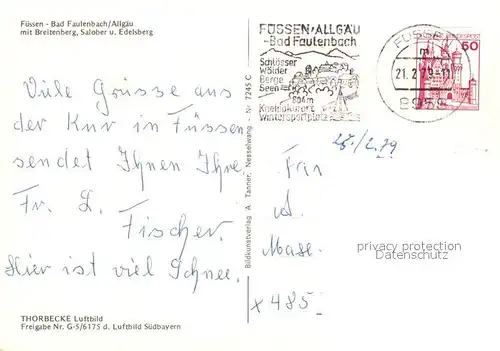 Füssen - Bad Faulenbach/Allgäu
mit Breitenberg, Salober u. Edelsberg
FÜSSEN/ALLGÄU
-Bad Faulenbach
Schlösser
Wälder
Berge
Seen
804m
Kneippkurort
Wintersportplatz
FÜSSEN
m
21.2.79-11
8958
BUNDESPOST
50
Viele Grüsse aus
der Kur in Füssen
sendet Ihnen Ihre
Fr. L. Fischer.
Hier ist viel Schnee.
Bildkunstverlag A. Tanner, Nesselwang - Nr. 7245 C
Frau
x 485
privacy protection
Datenschutz
THORBECKE Luftbild
Freigabe Nr. G-5/6175 d. Luftbild Südbayern